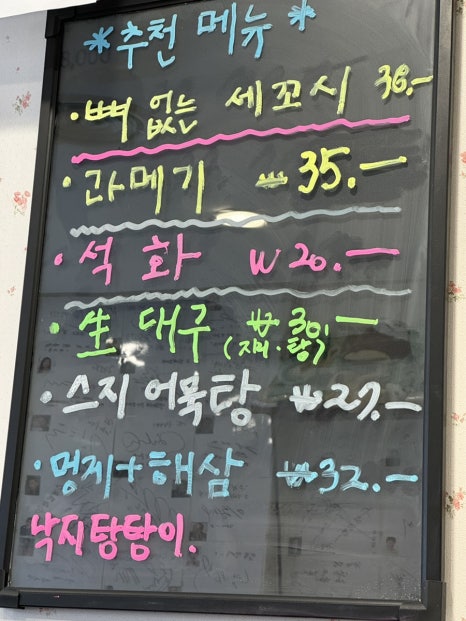 *추천 메뉴*
·뼈 없는 세꼬시 38.-
·과메기 ₩35.-
·석화 W20.-
·生 대구 ₩30.-
(지리·탕)
·스지어묵탕 ₩27.-
·멍게+해삼 ₩32.-
낙지탕탕이.